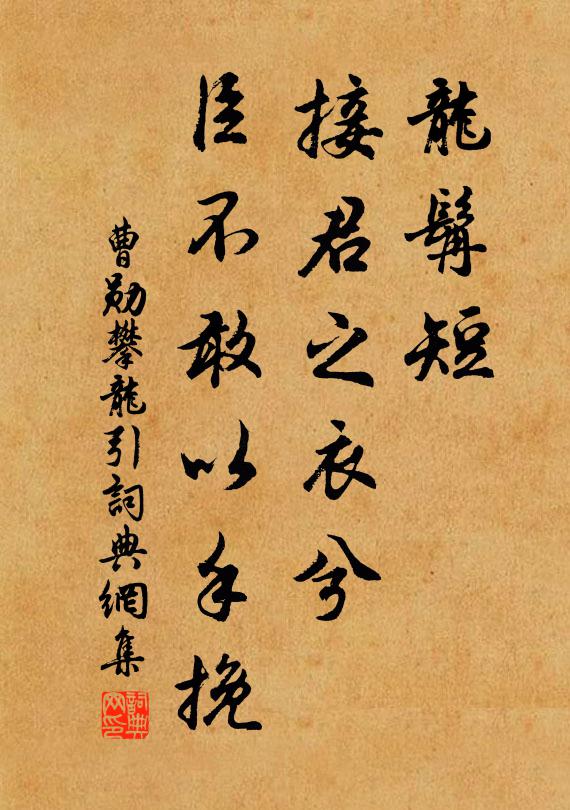 龍髯短
接君之衣兮
臣不敢以手挽
曹勛攀龍引詞典網集
詞典網印